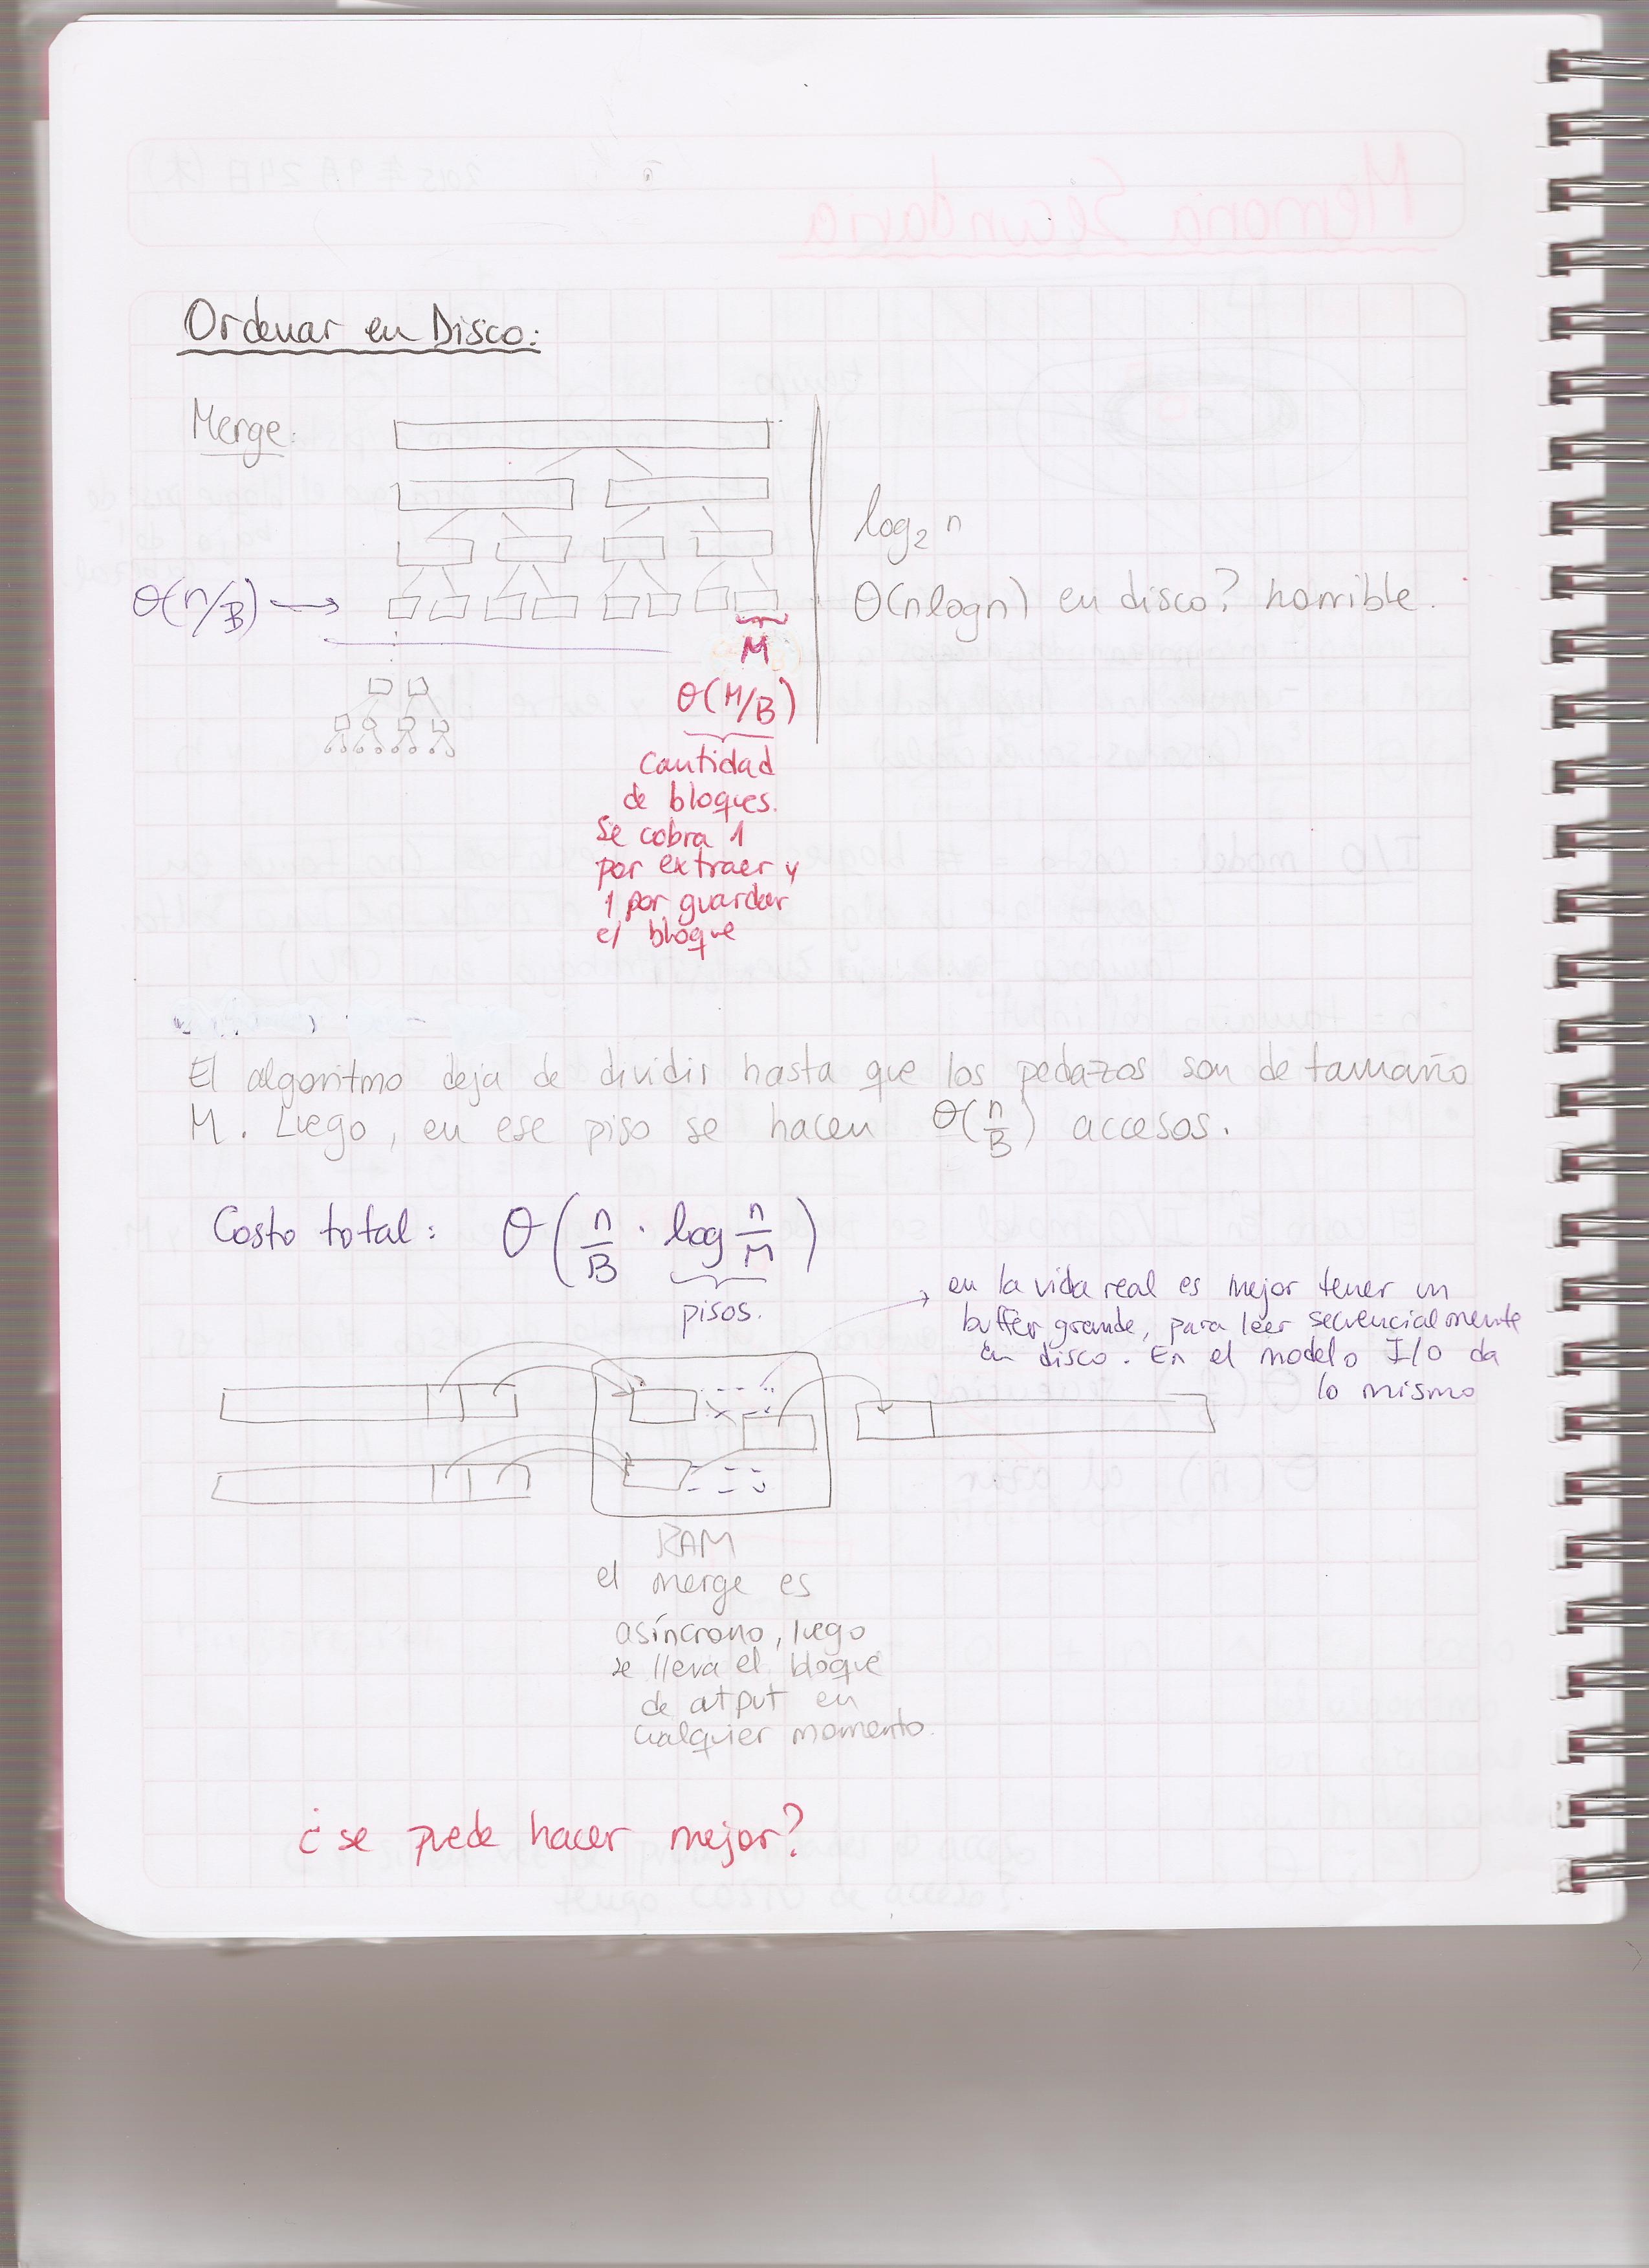 Ordenar en Disco:
Merge:
log₂ n
Θ(n/B) →
Θ(nlogn) en disco? horrible.
M
Θ(M/B)
Cantidad
de bloques.
Se cobra 1
por extraer y
1 por guardar
el bloque
El algoritmo deja de dividir hasta que los pedazos son de tamaño
M. Luego, en ese piso se hacen Θ(n/B) accesos.
Costo total: Θ(n/B · log n/M)
pisos.
→ en la vida real es mejor tener un
buffer grande, para leer secuencialmente
en disco. En el modelo I/O da
lo mismo
RAM
el merge es
asíncrono, luego
se lleva el bloque
de output en
cualquier momento.
¿se puede hacer mejor?